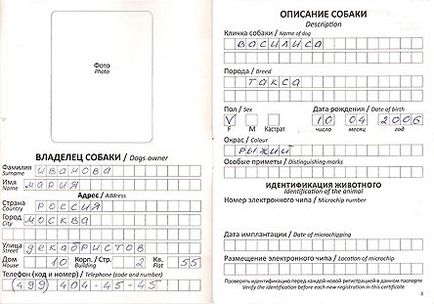 Фото
Photo
ВЛАДЕЛЕЦ СОБАКИ / Dogs owner
Фамилия
Surname
ИВАНОВА
Имя
Name
МАРИЯ
Адрес / Address
Страна
Country
РОССИЯ
Город
City
МОСКВА
Улица
Street
ДЕКАБРИСТОВ
Дом
House
10
Корп. / Стр.
Building
2
Кв.
Flat
55
Телефон (код и номер) / Telephone (code and number)
(499) 404-45-45
ОПИСАНИЕ СОБАКИ
Description
Кличка собаки / Name of dog
ВАСИЛИСА
Порода / Breed
ТАКСА
Пол / Sex
Дата рождения / Date of birth
V
10 04 2006
F M Кастрат
число месяц год
Окрас / Colour
РЫЖИЙ
Особые приметы / Distinguishing marks
ИДЕНТИФИКАЦИЯ ЖИВОТНОГО
Identification of the animal
Номер электронного чипа / Microchip number
Дата имплантации / Date of microchipping
Размещение электронного чипа / Location of microchip
Проверить идентификацию перед каждой новой регистрацией в данном паспорте
Verify the identification before each new registration in this certificate
3